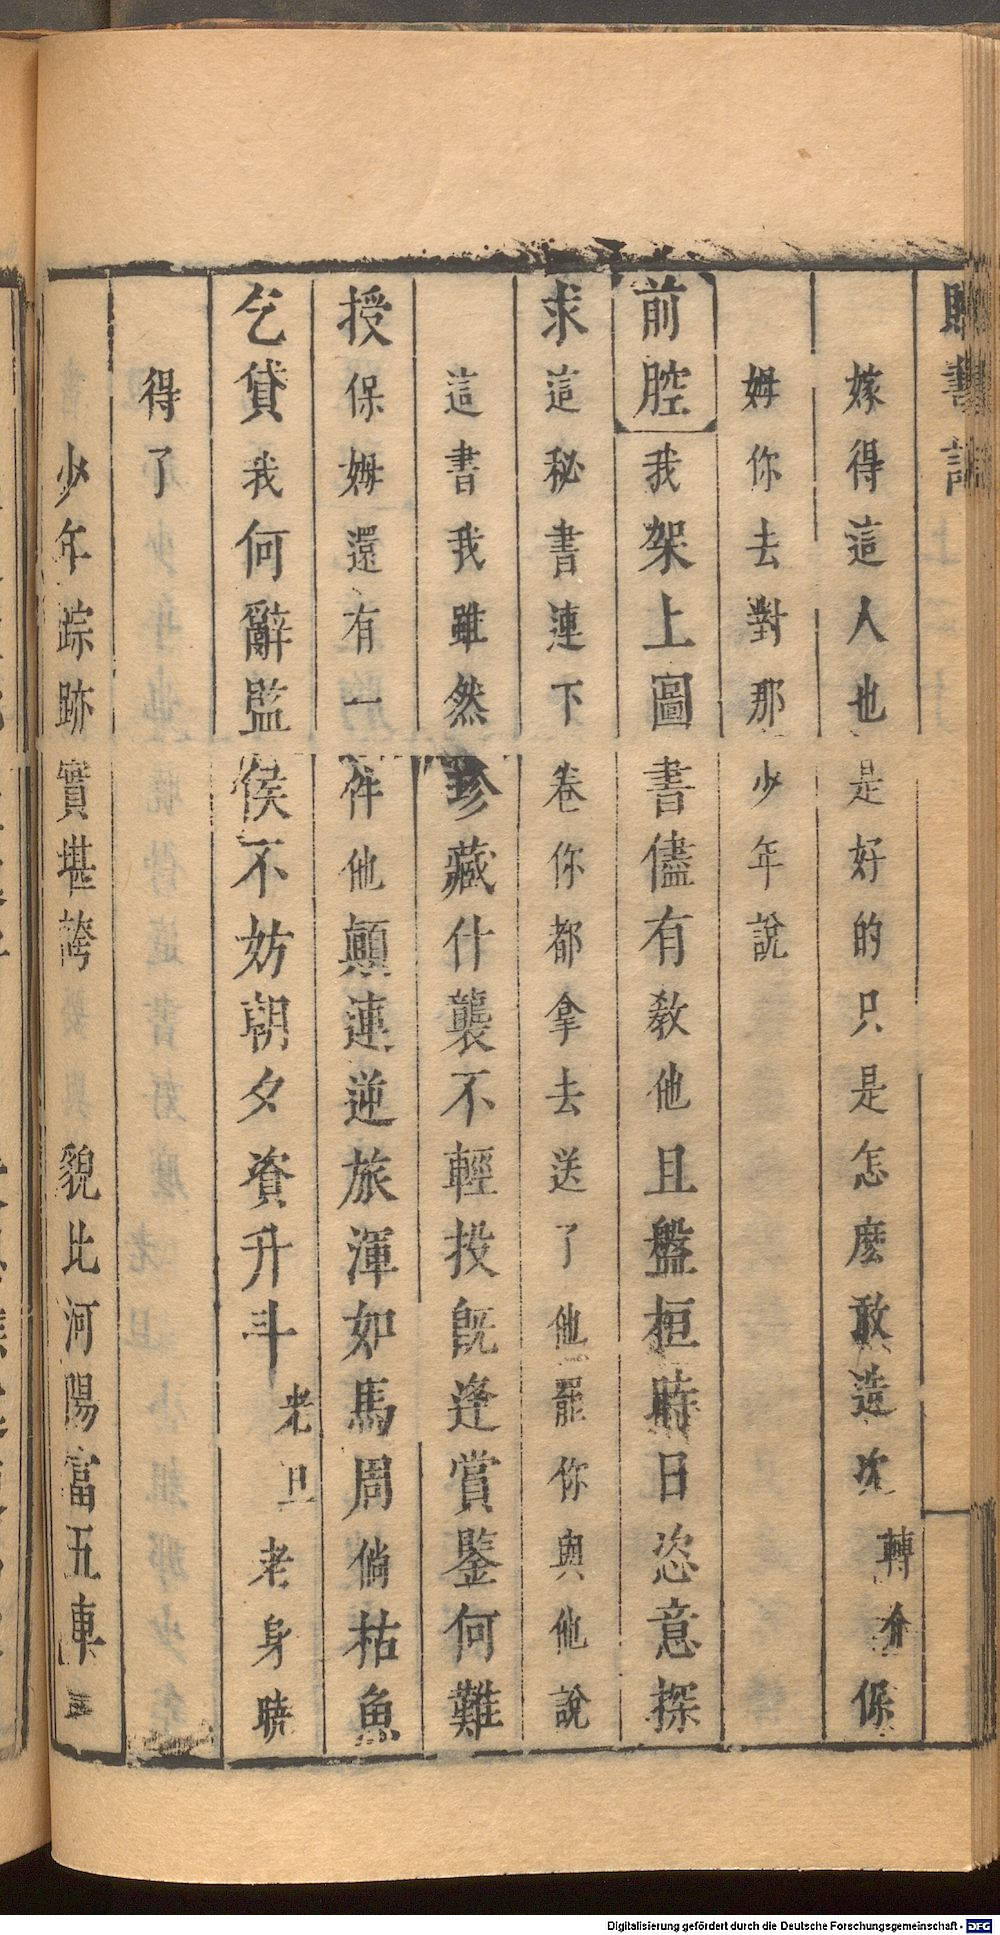 贈書記
嫁得這人也是好的只是怎麽敢造次轉介保
姆你去對那少年說
前腔我架上圖書儘有敎他且盤桓時日恣意探
求這秘書連下卷你都拿去送了他罷你與他說
這書我雖然珍藏什襲不輕投旣逢賞鑒何難
授保姆還有一件他顛連逆旅渾如馬周倘枯魚
乞貸我何辭監侯不妨朝夕資升斗老旦老身曉
得了
少年踪跡實堪誇 貌比河陽富五車
Digitalisierung gefördert durch die Deutsche Forschungsgemeinschaft - DFG